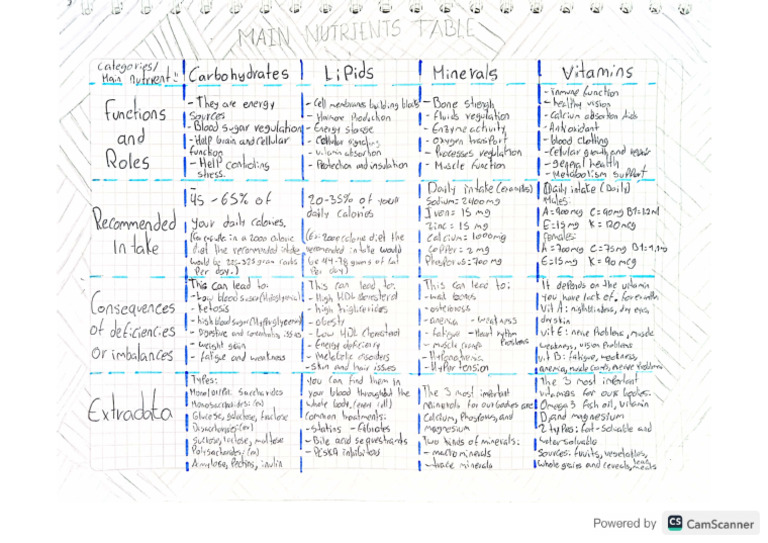 MAIN NUTRIENTS TABLE
Categories/
Main Nutrient
Carbohydrates
Lipids
Minerals
Vitamins
Functions
and
Roles
- They are energy
sources
- Blood sugar regulation
- Help brain and cellular
function
- Help controling
stress.
- Cell membranes building blocks
- Hormone Production
- Energy storage
- Cellular signaling
- vitamin absorption
- Protection and insulation
- Bone strengh
- Fluids regulation
- Enzyme activity
- oxygen transport
- Processes regulation
- Muscle function
- immune function
- healthy vision
- Calcium absorption
- Antioxidant
- blood clotting
- Cellular growth and repair
- general health
- Metabolism support
Recommended
Intake
45 - 65% of
your daily calories.
diet the recommended intake
would be 225-325 gram carbs
Per day.)
20-35% of your
daily calories
2000 calorie diet the
recommended intake would
be 44-78 grams of fat
Per day)
Daily intake (examples)
Sodium= 2400mg
Iron= 15 mg
Zinc= 15 mg
Calcium= 1000mg
Copper= 2 mg
Phosporus= 700 mg
Daily intake (Daily)
Males:
A=900mcg C=90mg B1=1.2ml
E=15mg K=120mcg
Females:
A=700mcg C=75mg
E=15mg K=90mcg
Consequences
of deficiencies
or imbalances
This can lead to:
- Low blood sugar
- Ketosis
- high blood sugar
- Digestive and issues
- weight gain
- fatige and weakness
This can lead to:
- High
- high
- obesity
- Low HDL
- Energy deficiency
- skin and hair issues
This can lead to:
- weak bones
- anemia - weakness
- fatige - Heart rythm
Problems
- muscle cramps
- Hypertension
It depends on the vitamin
you have lack of. for example
Vit A: nightblindness, dry eyes,
dry skin
vit E: nerve Problems, muscle
weakness, vision problems
vit B: fatigue, weakness,
anemia, nerve problems
Extradata
Types:
Glucose, galactose,
sucrose, lactose, maltose
Amylose, Pectins, inulin
you can find them in
your blood throughout the
whole body
Common treatments:
- statins - fibrates
- Bile acid
- PCSK9 inhibitors
The 3 most
minerals for our bodies are
Calcium, Phosporus, and
magnesium
Two kinds of minerals:
- macrominerals
- trace minerals
The 3 most
vitamins for our bodies:
Omega 3 fish oil, vitamin
D, and magnesium
2 types: fat-soluable and
water soluable
Sources: fruits, vegetables,
whole grains and
Powered by CS CamScanner